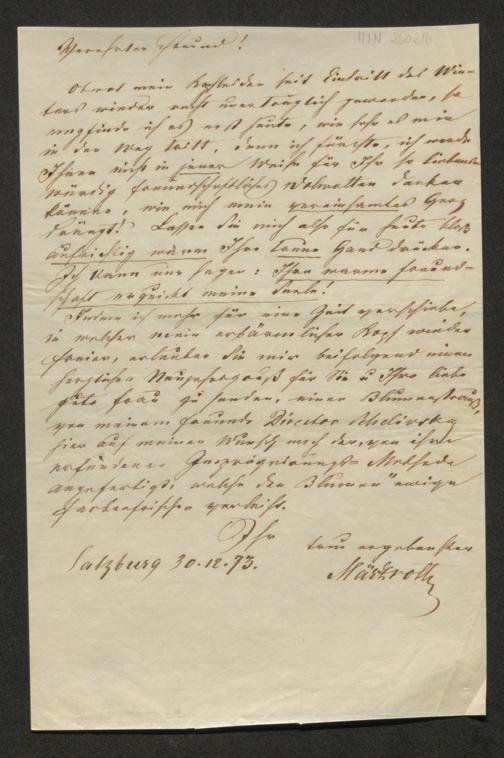 HIN 25024
Verehrter Freund!
Obwol mein Kopfleiden seit Eintritt des Win-
ters wieder recht unerträglich geworden, so
empfinde ich es erst heute, wie sehr es mir
in den Weg tritt, denn ich fürchte, ich werde
Ihnen nicht in jener Weise für Ihr so liebens-
würdig freundschaftliches Wolwollen danken
können, wie mich mein vereinsamtes Herz
drängt! Lassen Sie mich also für heute bloß
aufrichtig warm Ihre treue Hand drücken.
Ich kann nur sagen: Ihre warme Freund-
schaft erquickt meine Seele!
Indem ich mehr für eine Zeit verschiebe,
in welcher mein erbärmlicher Kopf wieder
freier, erlauben Sie mir beifolgend einen
herzlichen Neujahrsgruß für Sie u Ihre liebe
gute Frau zu senden, einen Blumenstrauß,
von meinem Freunde Director
hier auf meinen Wunsch nach der, von ihm
erfundenen Methode
angefertigt, welche den Blumen "ewige
Farbenfrischen verleiht.
Ihr
treu ergebenster
Salzburg 30.12.93. Märzroth